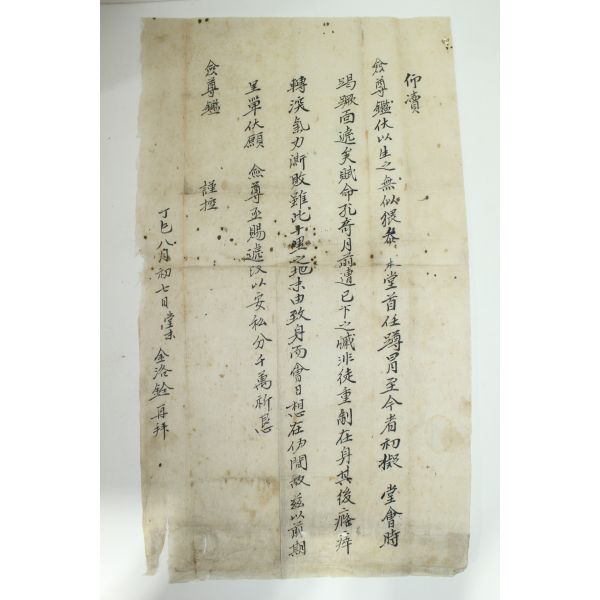 仰瀆
僉尊鑑伏以生之無似猥忝 本堂首任蹲冒至今者初擬 堂會時
踢蹶面遞矣賦命孔奇月前遭已下之慽非徒重制在身其後癃痒
轉深氣力澌敗雖此十里之地末由致身而會日想在仂間敢玆以前期
呈單伏願 僉尊亟賜遞改以安私分千萬祈恳
僉尊鑑 謹控
丁巳八月初七日堂末 金洛銓 再拜